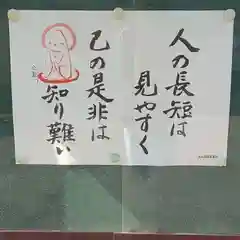 人の長短は
見やすく
己の是非は
知り難い